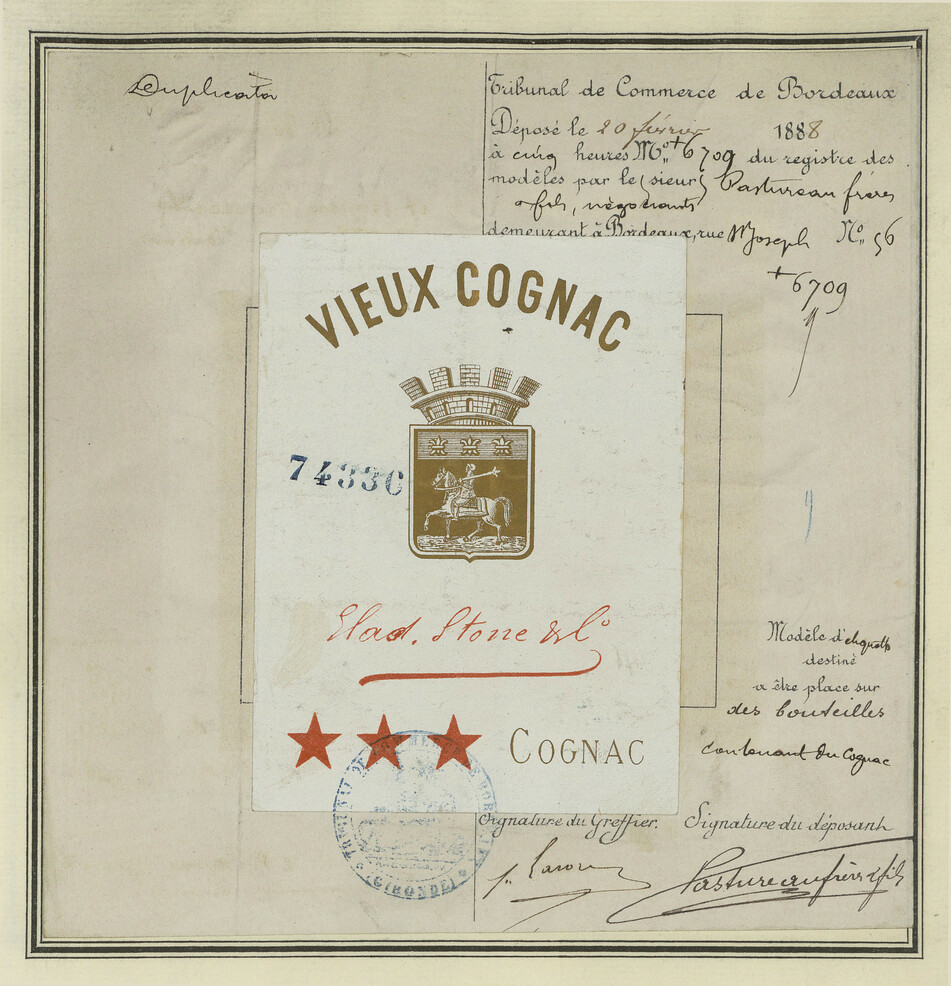 Duplicata
Tribunal de Commerce de Bordeaux
Déposé le 20 février 1888
à cinq heures No +6709 du registre des
modèles par le (sieur) Pastureau frères
& fils, négociants
demeurant à Bordeaux, rue St Joseph No 56
+6709
VIEUX COGNAC
7433C
Elad. Stone & Co
COGNAC
Modèle d'étiquette
destiné
a être place sur
des bouteilles
contenant du Cognac
TRIBUNAL DE COMMERCE DE BORDEAUX
(GIRONDE)
Signature du Greffier. Signature du déposant
Pastureau frères & fils